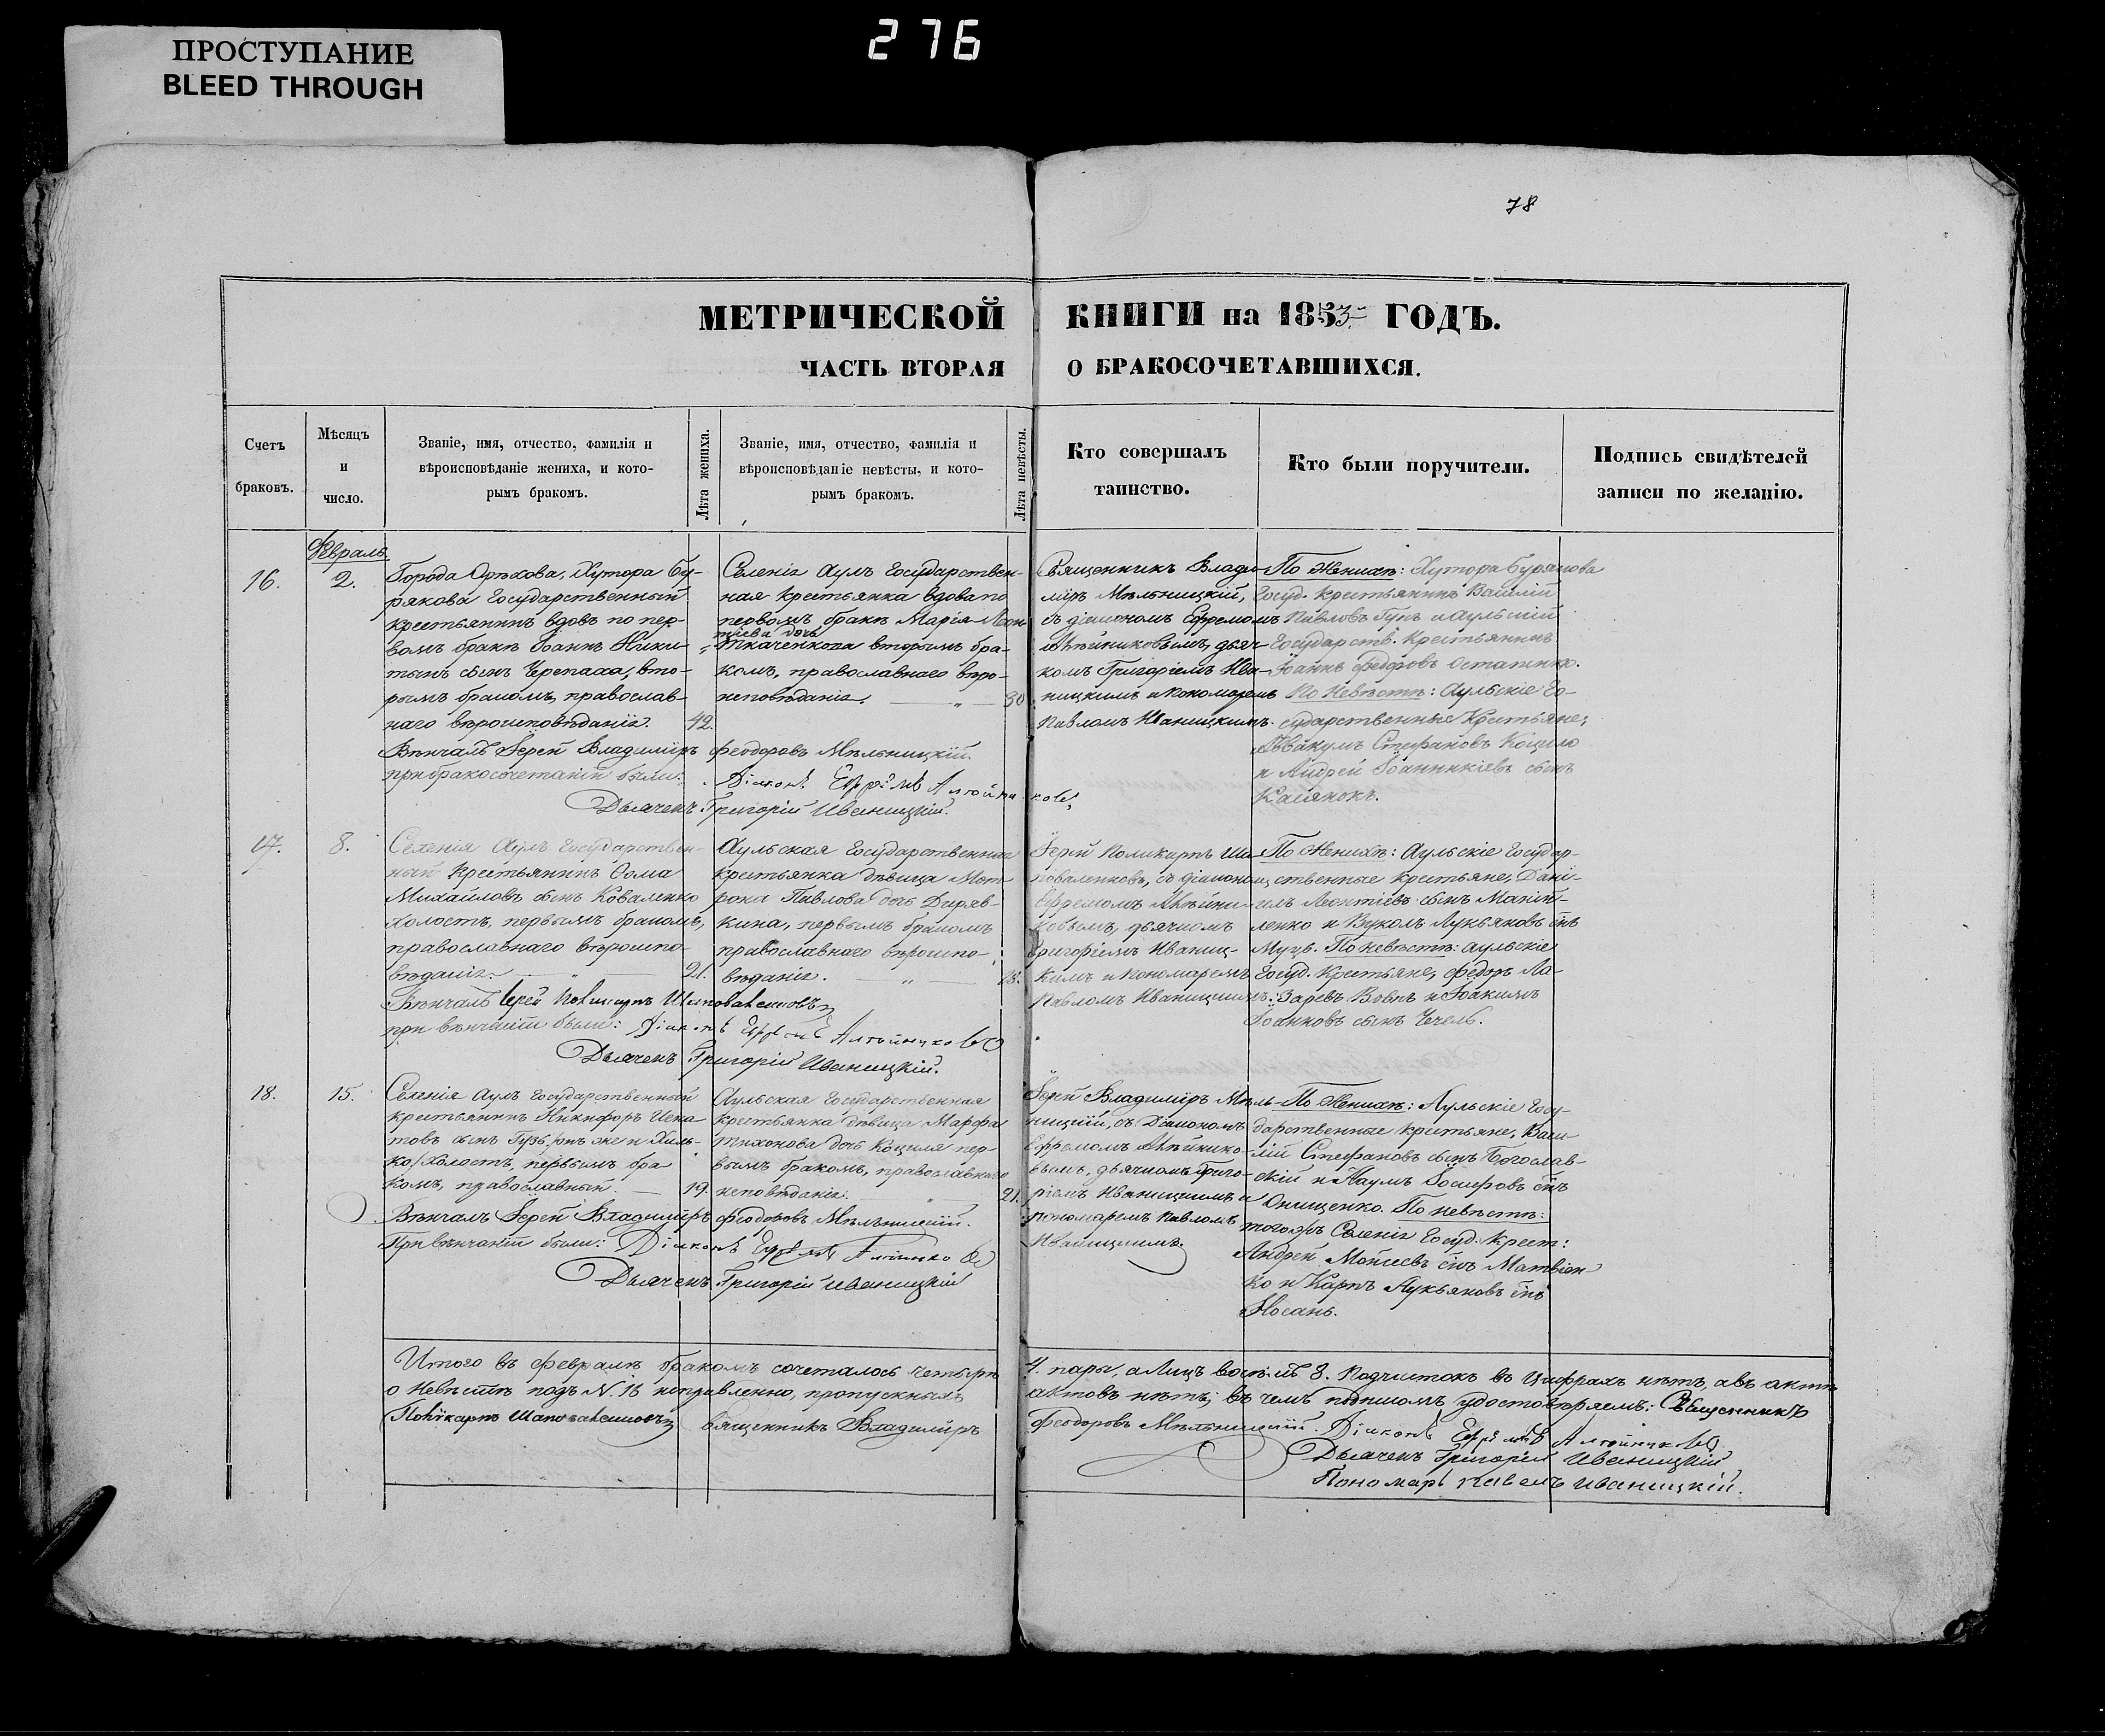 ПРОСТУПАНИЕ
BLEED THROUGH
276
78
МЕТРИЧЕСКОЙ КНИГИ на 1853 ГОДЪ.
ЧАСТЬ ВТОРАЯ О БРАКОСОЧЕТАВШИХСЯ.
Счетъ
браковъ.
Мѣсяцъ
и
число.
Званіе, имя, отчество, фамилія и
вѣроисповѣданіе жениха, и кото-
рымъ бракомъ.
Лѣта жениха.
Званіе, имя, отчество, фамилія и
вѣроисповѣданіе невѣсты, и кото-
рымъ бракомъ.
Лѣта невѣсты.
Кто совершалъ
таинство.
Кто были поручители.
Подпись свидѣтелей
записи по желанію.
Февраль.
16.
2.
Города Орѣхова, Хутора Бу-
рякова Государственный
крестьянинъ вдовъ по пер-
вомъ бракѣ Іоаннъ Ники-
тинъ сынъ Черепаха, вто-
рымъ бракомъ, православ-
наго вѣроисповѣданія.
42.
Селенія Аулъ Государствен-
ная крестьянка вдова по
первомъ бракѣ Марія Леон-
тіева дочь
Ткаченкова вторымъ бра-
комъ, православнаго вѣро-
исповѣданія. — „ —
30
Священникъ Влади-
міръ Мѣльницкій,
съ діакономъ Ефремомъ
Алтѣйниковымъ, дьяч-
комъ Григоріемъ Ива-
ницкимъ и пономаремъ
Павломъ Иваницкимъ.
По Женихѣ: Хутора Бурякова
Госуд. крестьянинъ Василій
Павловъ Гупъ и Аульскій
Государств. крестьянинъ
Іоаннъ Федоровъ Остапенко.
По Невѣстѣ: Аульскіе Го-
сударственные Крестьяне,
Аввакумъ Стефановъ Коцило
и Андрей Іоанникіевъ сынъ
Касянокъ.
Вѣнчалъ Іерей Владиміръ Феодоровъ Мѣльницкій.
при бракосочетаніи были: Діаконъ Ефремъ Алтѣйниковъ,
Дьячекъ Григорій Иваницкій.
17.
8.
Селенія Аулъ Государствен-
ный Крестьянинъ Ѳома
Михайловъ сынъ Коваленко
холостъ, первымъ бракомъ,
православнаго вѣроиспо-
вѣданія. — „ —
21.
Аульская Государственная
крестьянка дѣвица Мот-
рона Павлова дочь Диряв-
кина, первымъ бракомъ
православнаго вѣроиспо-
вѣданія. — „ —
18.
Іерей Поликарпъ Ша-
поваленковъ, съ діакономъ
Ефремомъ Алтѣйни-
ковымъ, дьячкомъ
Григоріемъ Иваниц-
кимъ и пономаремъ
Павломъ Иваницкимъ.
По Женихѣ: Аульскіе Государ-
ственные крестьяне, Дани-
илъ Леонтіевъ сынъ
ленко и Вуколъ Лукьяновъ снъ
Муцъ. По невѣстѣ: Аульскіе
Госуд. Крестьяне, Федоръ Ла-
заревъ Вовкъ и Іоакимъ
Іоанновъ сынъ Чечель.
Вѣнчалъ Іерей Поликарпъ Шаповаленковъ
при вѣнчаніи были: Діаконъ Ефремъ Алтѣйниковъ
Дьячекъ Григорій Иваницкій.
18.
15.
Селенія Аулъ Государственный
крестьянинъ Никифоръ Игна-
товъ сынъ Гузь, онъ же и Хиль-
ко, Холостъ, первымъ бра-
комъ, православный. —
19.
Аульская Государственная
крестьянка дѣвица Марфа
Тихонова дочь Коциля пер-
вымъ бракомъ, православнаго
исповѣданія.
21.
Іерей Владиміръ Мѣль-
ницкій, съ Діакономъ
Ефремомъ Алтѣйнико-
вымъ, дьячкомъ Григо-
ріемъ Иваницкимъ и
пономаремъ Павломъ
Иваницкимъ.
По Женихѣ: Аульскіе Госу-
дарственные крестьяне, Васи-
лій Стефановъ сынъ Богослав-
скій и Наумъ Іосифовъ снъ
Онищенко. По невѣстѣ:
тогожъ Селенія Госуд. Крест:
Андрей Моисеевъ снъ Матвіен-
ко и Карпъ Лукьяновъ снъ
Носань.
Вѣнчалъ Іерей Владиміръ Феодоровъ Мѣльницкій.
При вѣнчаніи были: Діаконъ Ефремъ Алтѣйниковъ
Дьячекъ Григорій Иваницкій
Итого въ февралѣ бракомъ сочеталось четыре 4. пары, а лицъ восемь 8. Подчистокъ въ цифрахъ нѣтъ, а въ актѣ
о Невѣстѣ подъ N. 16 исправленно, пропускныхъ актовъ нѣтъ; въ чемъ подписомъ удостовѣряемъ: Священникъ
Поликарпъ Шаповаленковъ Священникъ Владиміръ Феодоровъ Мѣльницкій. Діаконъ Ефремъ Алтѣйниковъ
Дьячекъ Григорій Иваницкій
Пономарь Павелъ Иваницкій.